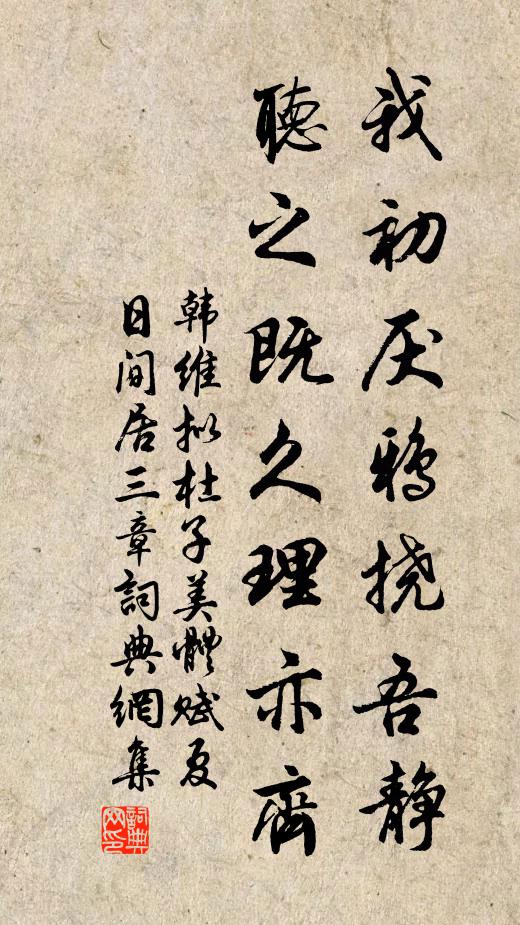 我初厌鸦挠吾静
聽之既久理亦齊
韩維拟杜子美體赋夏
日间居三章詞典網集
詞典網印